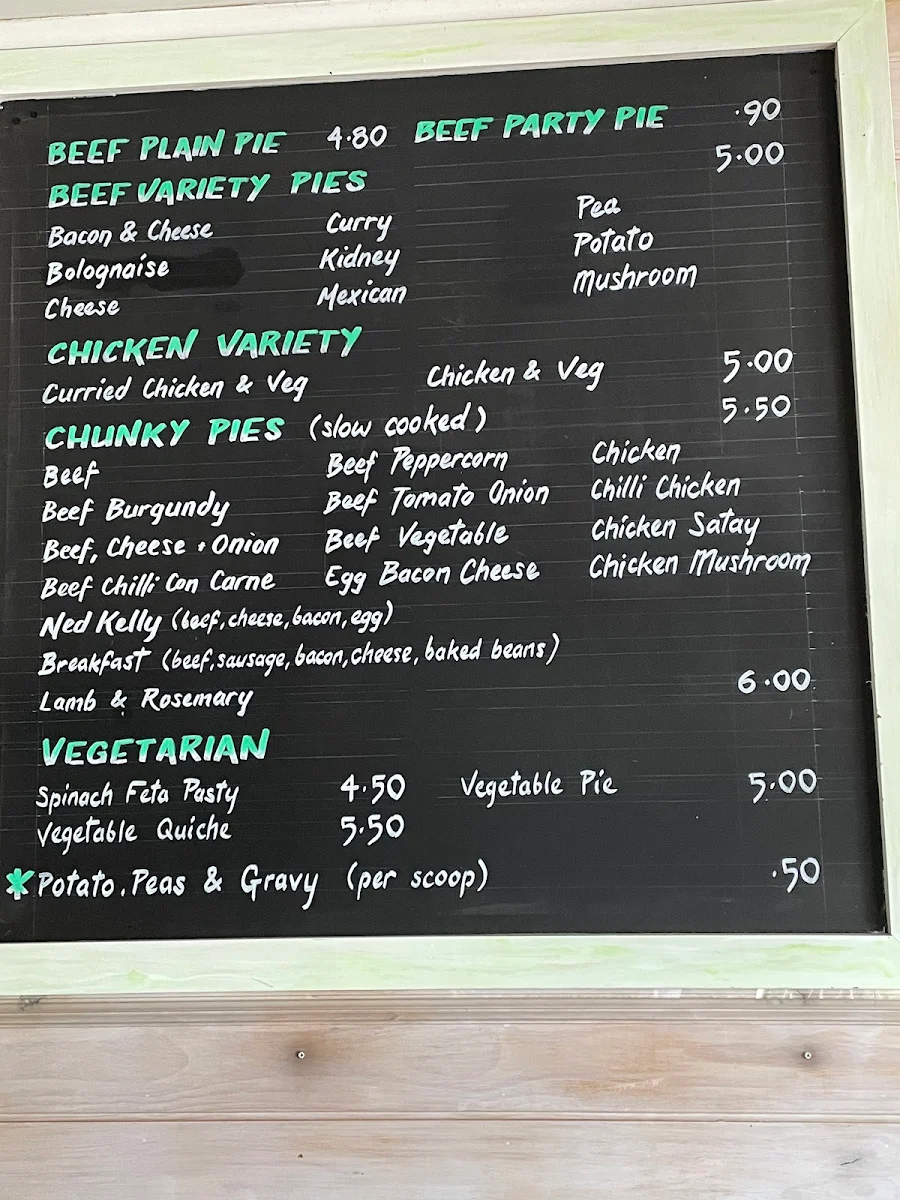 BEEF PLAIN PIE 4.80 BEEF PARTY PIE .90
BEEF VARIETY PIES 5.00
Bacon & Cheese Curry Pea
Bolognaise Kidney Potato
Cheese Mexican Mushroom
CHICKEN VARIETY
Curried Chicken & Veg Chicken & Veg 5.00
CHUNKY PIES (slow cooked) 5.50
Beef Beef Peppercorn Chicken
Beef Burgundy Beef Tomato Onion Chilli Chicken
Beef, Cheese + Onion Beef Vegetable Chicken Satay
Beef Chilli Con Carne Egg Bacon Cheese Chicken Mushroom
Ned Kelly (beef, cheese, bacon, egg)
Breakfast (beef, sausage, bacon, cheese, baked beans)
Lamb & Rosemary 6.00
VEGETARIAN
Spinach Feta Pasty 4.50 Vegetable Pie 5.00
Vegetable Quiche 5.50
*Potato, Peas & Gravy (per scoop) .50